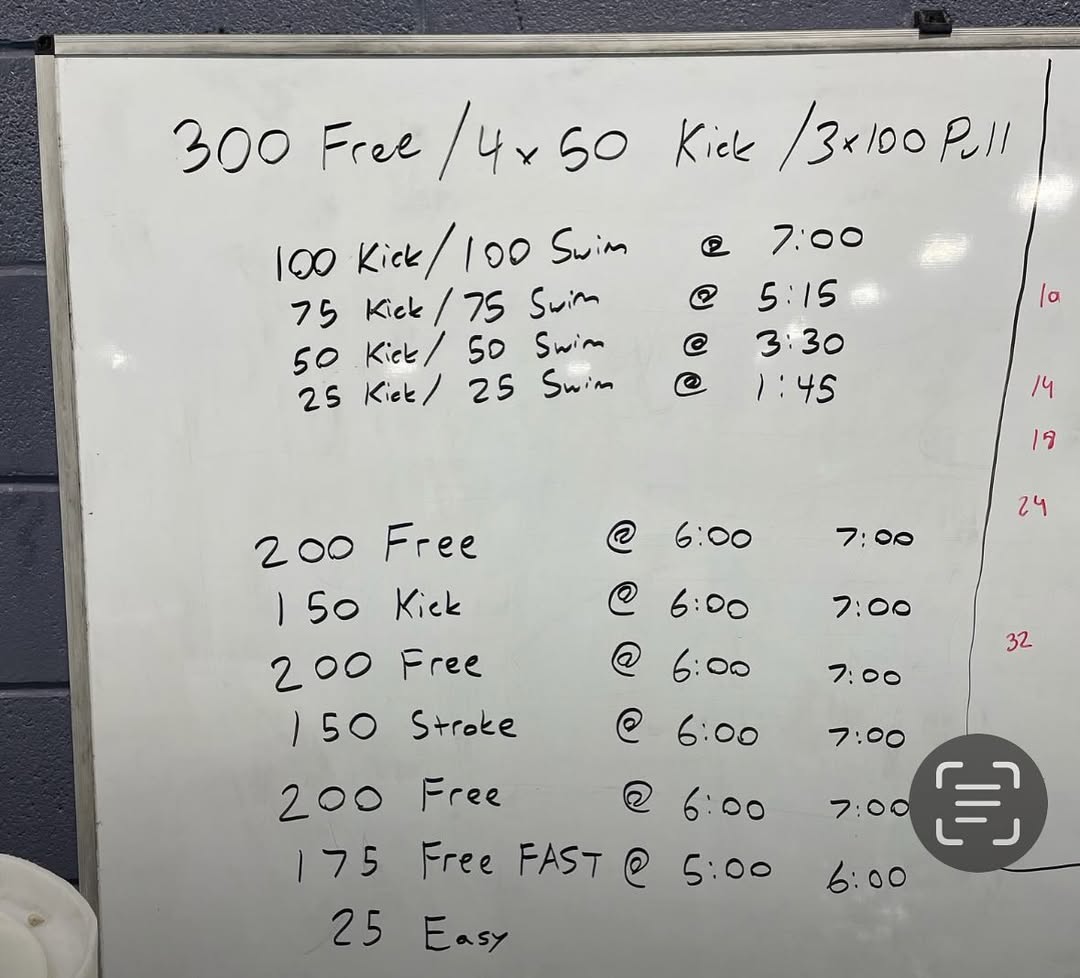 300 Free / 4 x 50 Kick / 3 x 100 Pull
100 Kick / 100 Swim @ 7:00
75 Kick / 75 Swim @ 5:15
50 Kick / 50 Swim @ 3:30
25 Kick / 25 Swim @ 1:45
200 Free @ 6:00 7:00
150 Kick @ 6:00 7:00
200 Free @ 6:00 7:00
150 Stroke @ 6:00 7:00
200 Free @ 6:00 7:00
175 Free FAST @ 5:00 6:00
25 Easy
14
24
32